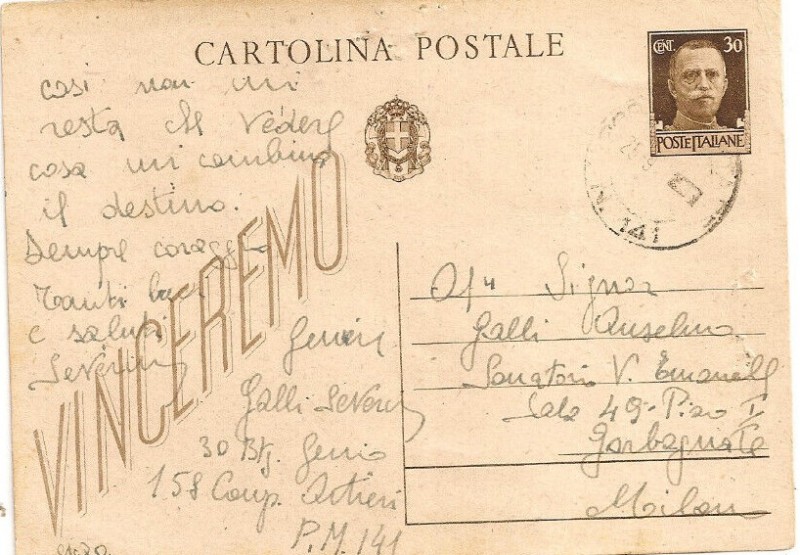 CARTOLINA POSTALE
CENT. 30
POSTE ITALIANE
così non mi
resta che vedere
cosa mi cambino
il destino.
Sempre coraggio
Tanti baci
e saluti
Severino
VINCEREMO
Geniere
Galli Severino
30 Btg. Genio
158 Comp. Artieri
P.M. 141
All' Signor
Galli Anselmo
Sanatorio V. Emanuele
Sala 49 - Piao I
Garbagnate
Milano
N. 141